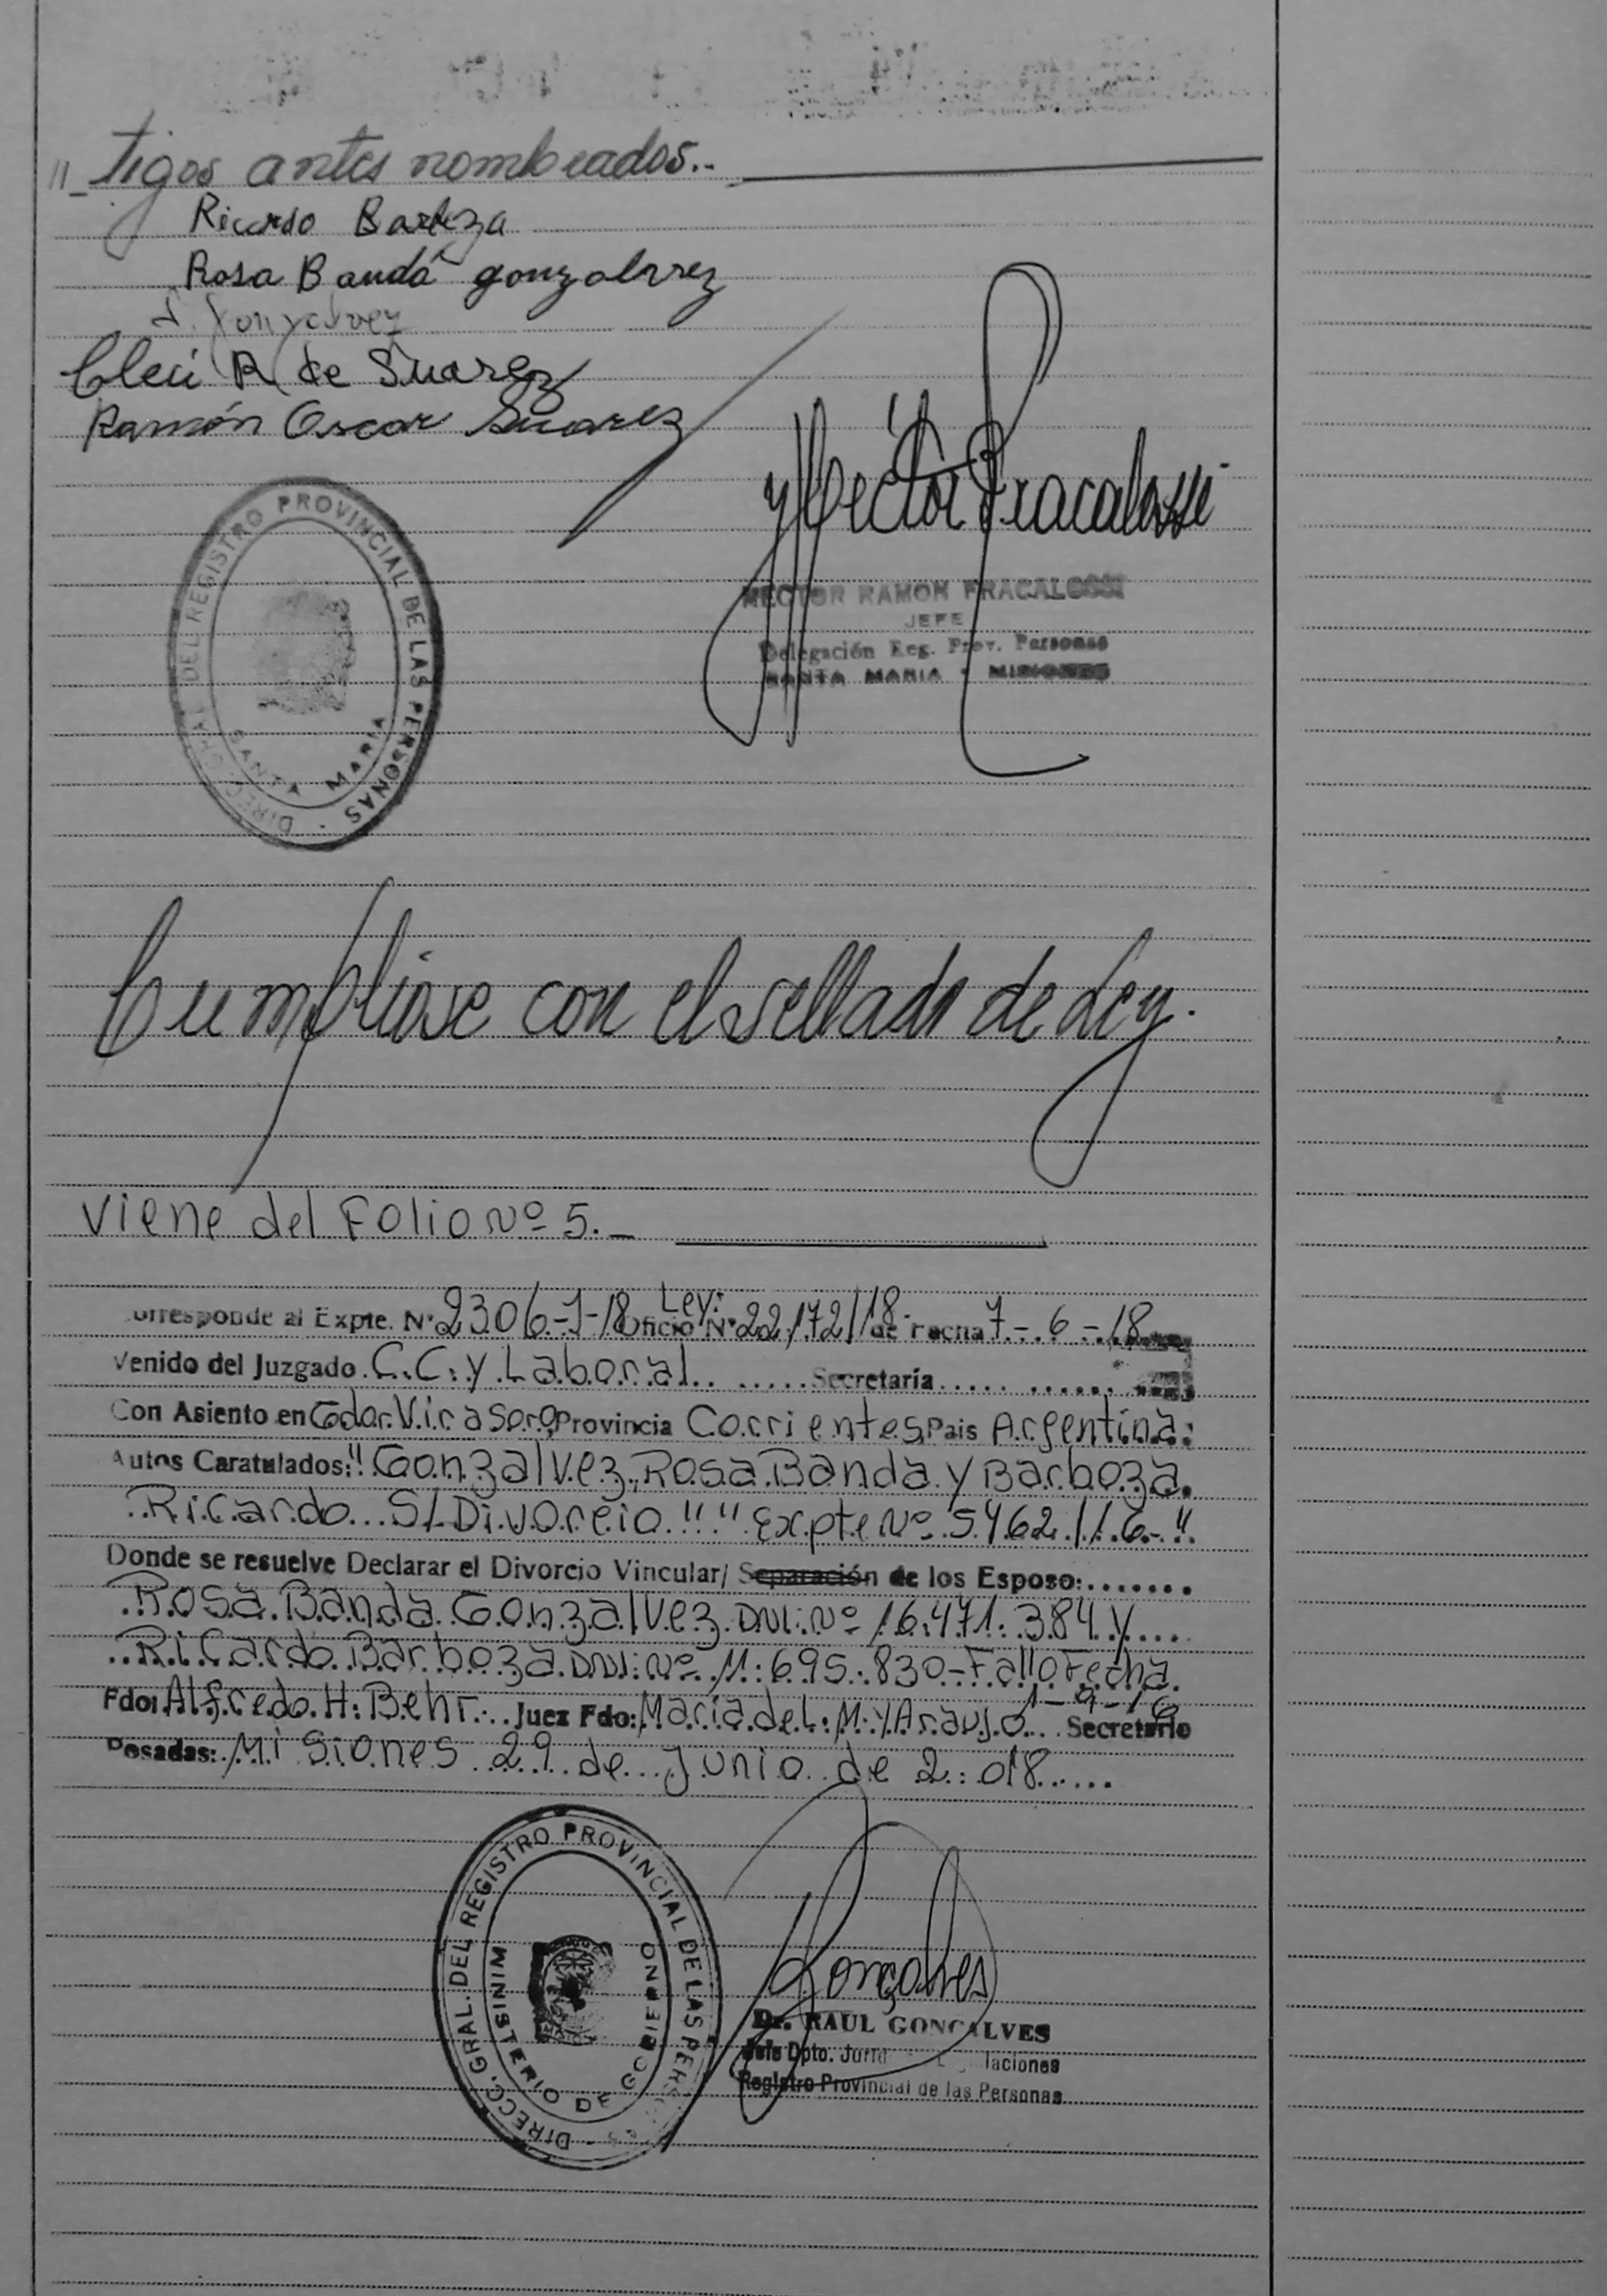 11_ tigos antes nombrados..
Ricardo Barboza
Rosa Banda gonzalvez
Gonzalvez
Cleci R de Suarez
Ramón Oscar Suarez
DIREC. GRAL DEL REGISTRO PROVINCIAL DE LAS PERSONAS -
SANTA MARIA
Hector Fracalossi
HECTOR RAMON FRACALOSSI
JEFE
Delegación Reg. Prov. Personas
SANTA MARIA - MISIONES
Cumpliose con el sellado de Ley.
Viene del Folio Nº 5._
orresponde al Expte. Nº 2306-J-18 Oficio Ley: Nº 22172/18- de Fecha 7-6-18
Venido del Juzgado C.C. y Laboral Secretaría
Con Asiento en Gdor. Virasoro, Provincia Corrientes, Pais Argentina:
Autos Caratulados: "Gonzalvez, Rosa Banda y Barboza
Ricardo S/ Divorcio" "Expte Nº 5462/16-"
Donde se resuelve Declarar el Divorcio Vincular/ Separación de los Esposo:
Rosa Banda Gonzalvez DNI: Nº 16.471.384 y
Ricardo Barboza DNI: Nº 11.695.830 - Fallo Fecha
1-9-16
Fdo: Alfredo H. Behr Juez Fdo: Maria del M. y Araujo Secretario
Posadas: Misiones 29 de Junio de 2.018
DIRECC. GRAL. DEL REGISTRO PROVINCIAL DE LAS PERS
MINISTERIO DE GOBIERNO
Gonçalves
Dr. RAUL GONCALVES
Jefe Dpto. laciones
Registro Provincial de las Personas